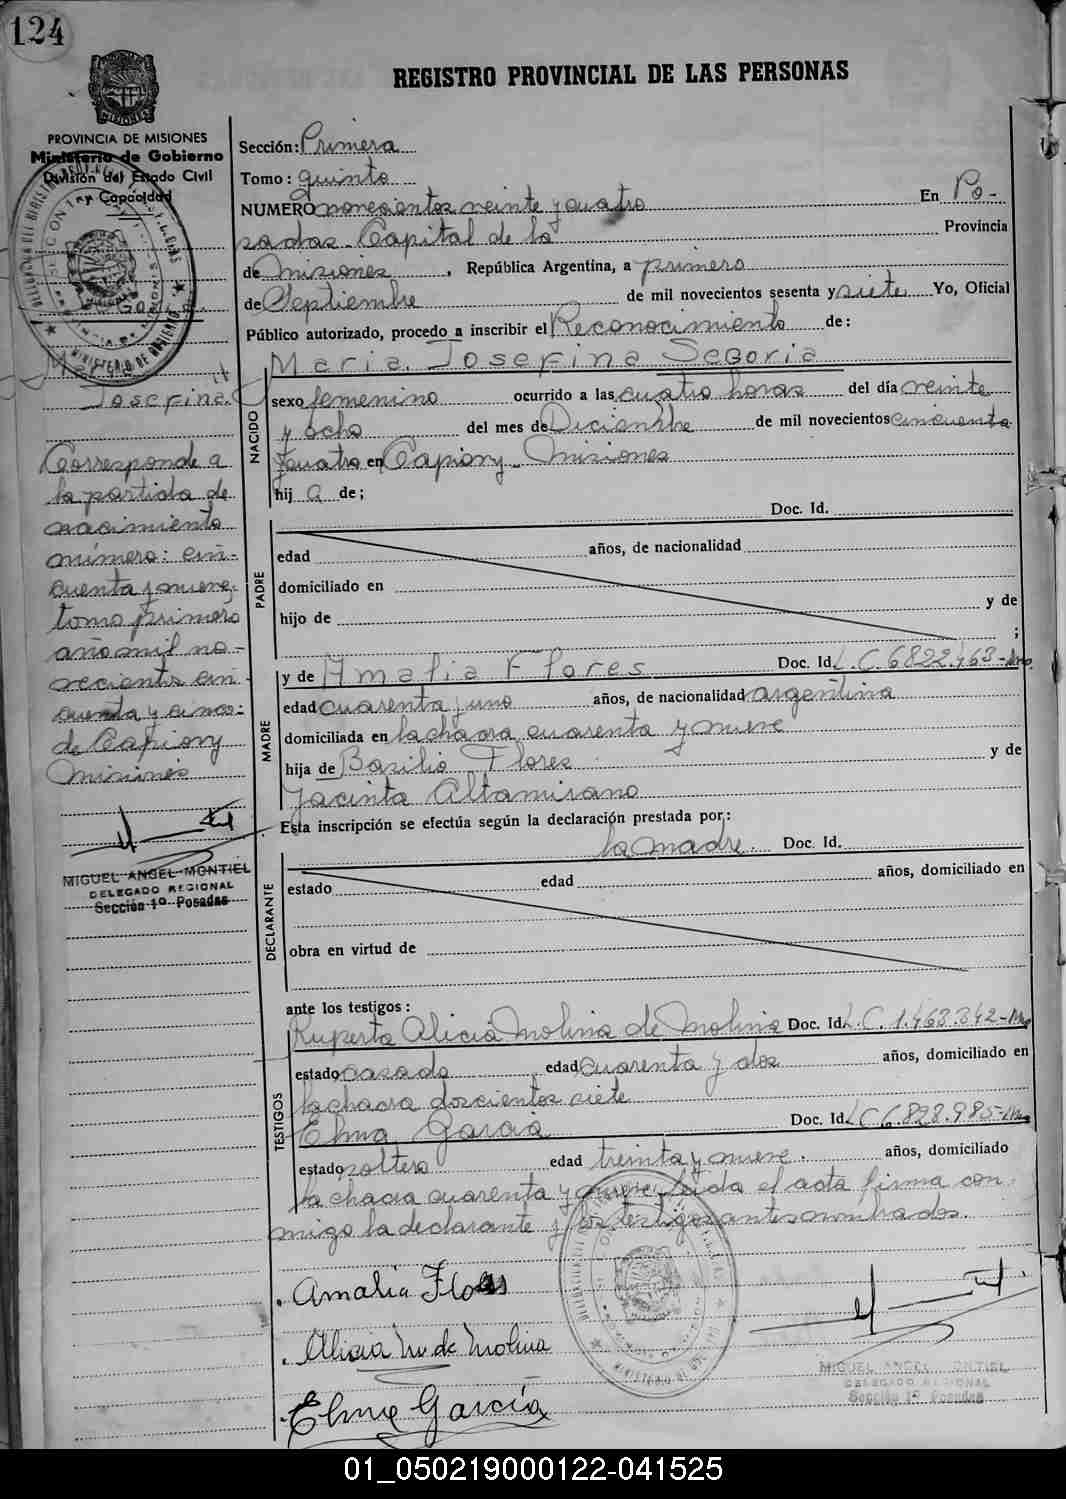 124
REGISTRO PROVINCIAL DE LAS PERSONAS
PROVINCIA DE MISIONES
Ministerio de Gobierno
División del Estado Civil
y Capacidad
Sección: Primera
Tomo: quinto
NUMERO novecientos veinte y cuatro En Po-
sadas Capital de la Provincia
de Misiones, República Argentina, a primero
de Septiembre de mil novecientos sesenta y siete Yo, Oficial
Público autorizado, procedo a inscribir el Reconocimiento de:
Maria Josefina Segovia
NACIDO
sexo femenino ocurrido a las cuatro horas del día veinte
y ocho del mes de Diciembre de mil novecientos cincuenta
y cuatro en Capiovy Misiones
hij a de;
PADRE
Doc. Id.
edad años, de nacionalidad
domiciliado en
hijo de y de
;
MADRE
y de Amalia Flores Doc. Id. L.C. 6822.463-Mnes
edad cuarenta y uno años, de nacionalidad argentina
domiciliada en la chacra cuarenta y nueve
hija de Basilio Flores y de
Jacinta Altamirano
Esta inscripción se efectúa según la declaración prestada por:
la madre. Doc. Id.
DECLARANTE
estado edad años, domiciliado en
obra en virtud de
ante los testigos:
TESTIGOS
Ruperta Alicia Molina de Molina Doc. Id. L.C. 1.463.342-Mnes
estado casada edad cuarenta y dos años, domiciliado en
la chacra doscientos siete
Elma Garcia Doc. Id. L.C 6.828.985-Mnes
estado soltera edad treinta y nueve. años, domiciliado
la chacra cuarenta y nueve, leida el acta firma con-
migo la declarante y los testigos antes nombrados.
Josefina
Corresponde a
la partida de
nacimiento
número: cin-
cuenta y nueve,
tomo primero
año mil no-
vecientos cin
cuenta y cinco:
de Capiovy
Misiones
MIGUEL ANGEL MONTIEL
DELEGADO REGIONAL
Sección 1º Posadas
Amalia Flores
Alicia M. de Molina
Elma García
MIGUEL ANGEL MONTIEL
DELEGADO REGIONAL
Sección 1º Posadas
01_050219000122-041525